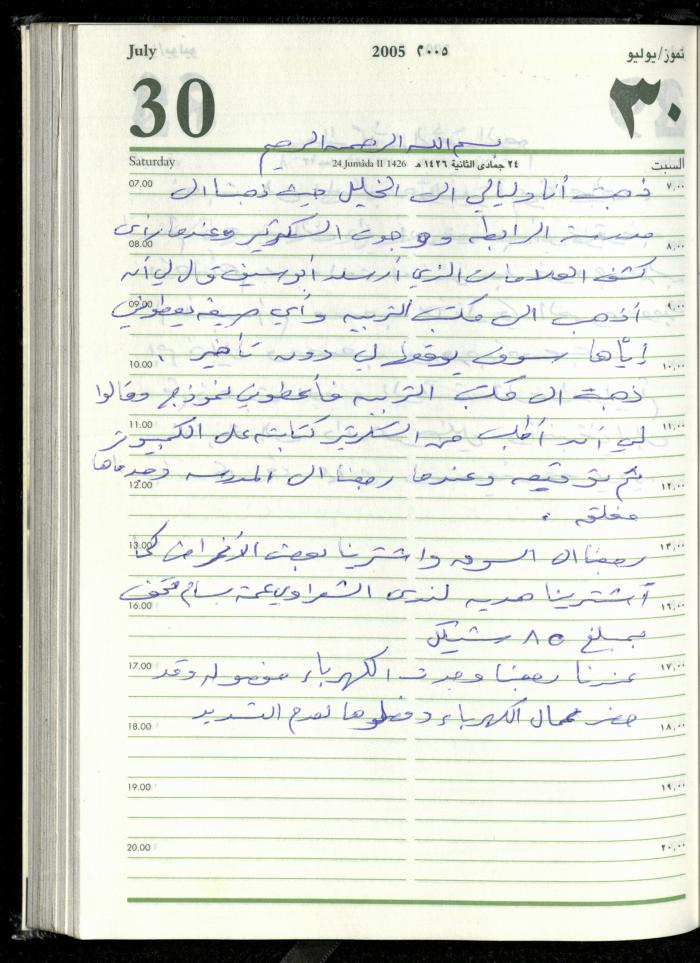 July 2005 ٢٠٠٥ تموز/يوليو
30 ٣٠
بسم الله الرحمن الرحيم
Saturday 24 Jumâda II 1426 ٢٤ جمادى الثانية ١٤٢٦ هـ السبت
07.00 ذهبت أنا وليالي الى الخليل حيث ذهبنا الى ٧,٠٠
مدرسة الرابطه ووجدت السكرتير وعندما رأى
08.00 ٨,٠٠
كشف العلامات الذي أرسله أبو سيف قال لي أن
09.00 أذهب الى مكتب التربيه وأي صيغه يعطوني ٩,٠٠
إيّاها سوف يوقعوا لي دون تأخير .
10.00 ١٠,٠٠
ذهبت الى مكتب التربيه فأعطوني نموذج وقالوا
11.00 لي أن أطلب من السكرتير كتابته على الكمبيوتر ١١,٠٠
ثم توقيعه وعندما رجعنا الى المدرسه وجدناها
12.00 ١٢,٠٠
مغلقه .
13.00 رجعنا الى السوق واشترينا بعض الأغراض كما ١٣,٠٠
أشترينا هديه لندى الشعراوي عمة بسام
16.00 ١٦,٠٠
بمبلغ ٨٥ شيكل
17.00 عندنا رجعنا وجدت الكهرباء مفصوله وقد ١٧,٠٠
حضر عمال الكهرباء وفصلوها لعدم التسديد
18.00 ١٨,٠٠
19.00 ١٩,٠٠
20.00 ٢٠,٠٠